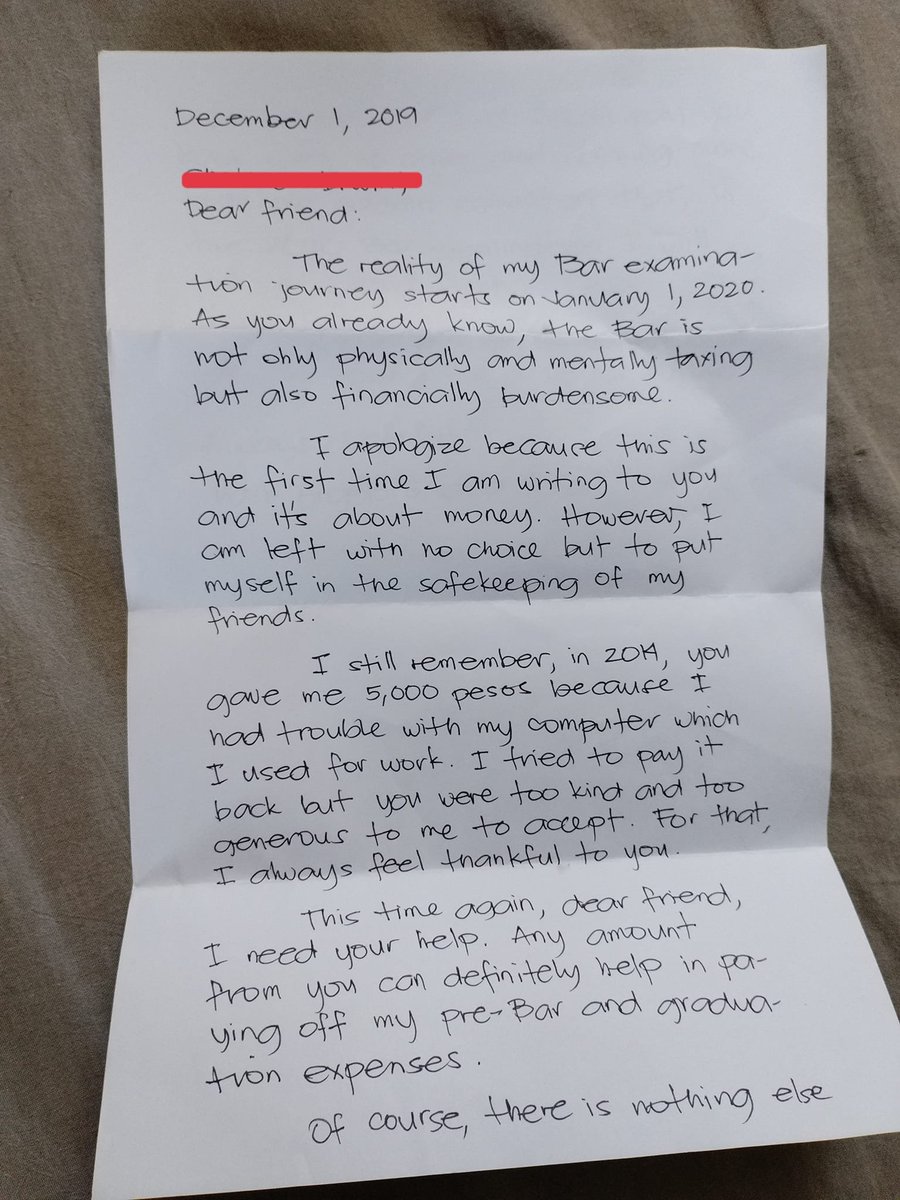 December 1, 2019
Dear friend:
The reality of my Bar examina-
tion journey starts on January 1, 2020.
As you already know, the Bar is
not only physically and mentally taxing
but also financially burdensome.
I apologize because this is
the first time I am writing to you
and it's about money. However, I
am left with no choice but to put
myself in the safekeeping of my
friends.
I still remember, in 2014, you
gave me 5,000 pesos because I
had trouble with my computer which
I used for work. I tried to pay it
back but you were too kind and too
generous to me to accept. For that,
I always feel thankful to you.
This time again, dear friend,
I need your help. Any amount
from you can definitely help in pa-
ying off my pre-Bar and gradua-
tion expenses.
Of course, there is nothing else